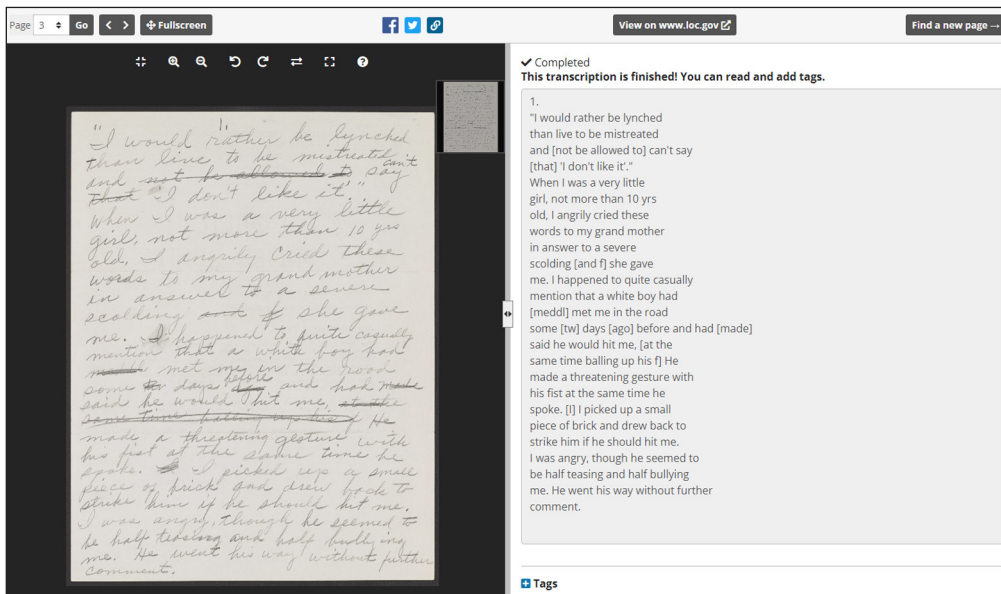 Page 3 Go < > Fullscreen
View on www.loc.gov
Find a new page →
"I would rather be lynched
1.
than live to be mistreated
can't
and not be allowed to say
that "I don't like it'."
When I was a very little
girl, not more than 10 yrs
old, I angrily cried these
words to my grand mother
in answer to a severe
scolding and f she gave
me. I happened to quite casually
mention that a white boy had
met me in the road
before
some tw days ago and had made
said he would hit me, at the
same time balling up his f He
made a threatening gesture with
his fist at the same time he
spoke. I picked up a small
piece of brick and drew back to
strike him if he should hit me.
I was angry, though he seemed to
be half teasing and half bullying
me. He went his way without further
comment.
Completed
This transcription is finished! You can read and add tags.
1.
"I would rather be lynched
than live to be mistreated
and [not be allowed to] can't say
[that] 'I don't like it'."
When I was a very little
girl, not more than 10 yrs
old, I angrily cried these
words to my grand mother
in answer to a severe
scolding [and f] she gave
me. I happened to quite casually
mention that a white boy had
[meddl] met me in the road
some [tw] days [ago] before and had [made]
said he would hit me, [at the
same time balling up his f] He
made a threatening gesture with
his fist at the same time he
spoke. [I] I picked up a small
piece of brick and drew back to
strike him if he should hit me.
I was angry, though he seemed to
be half teasing and half bullying
me. He went his way without further
comment.
Tags